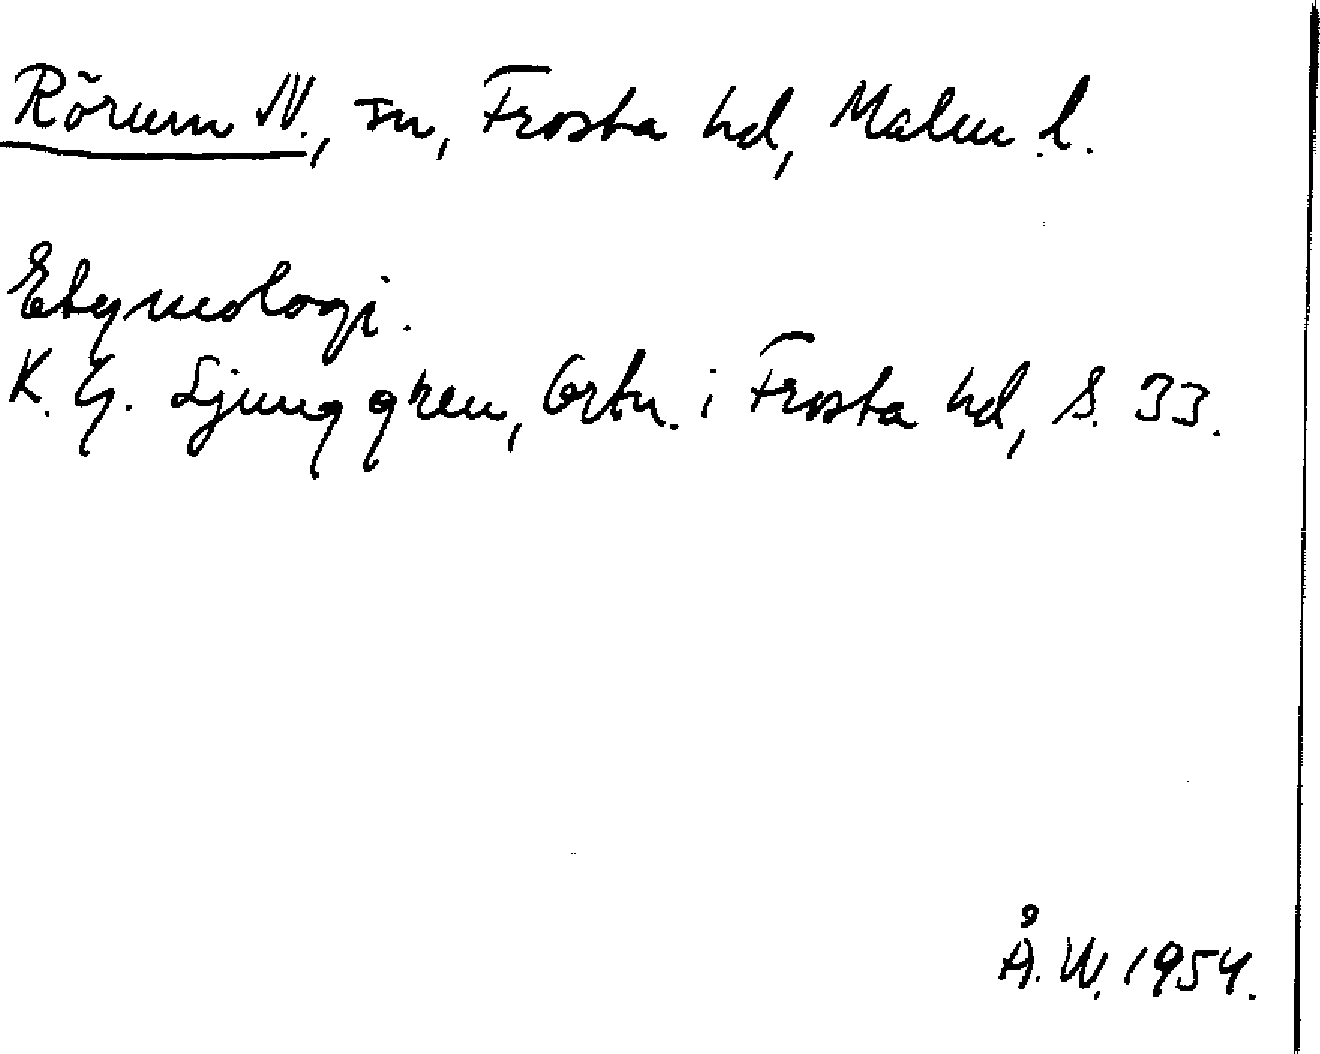 Rörum N., sn, Frosta hd, Malm. l.
Etymologi.
K. G. Ljunggren, Ortn. i Frosta hd, S. 33.
Å. W. 1954.